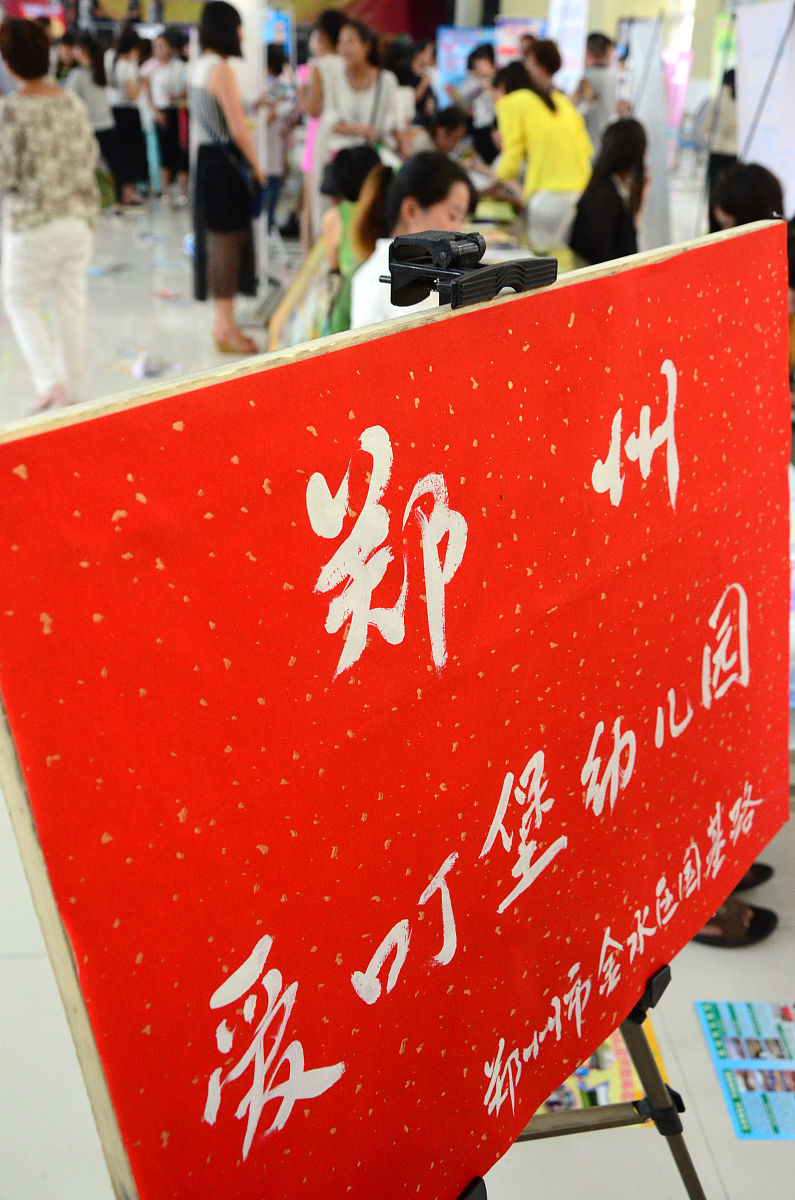 郑州
爱叮堡幼儿园
郑州市金水区国基路